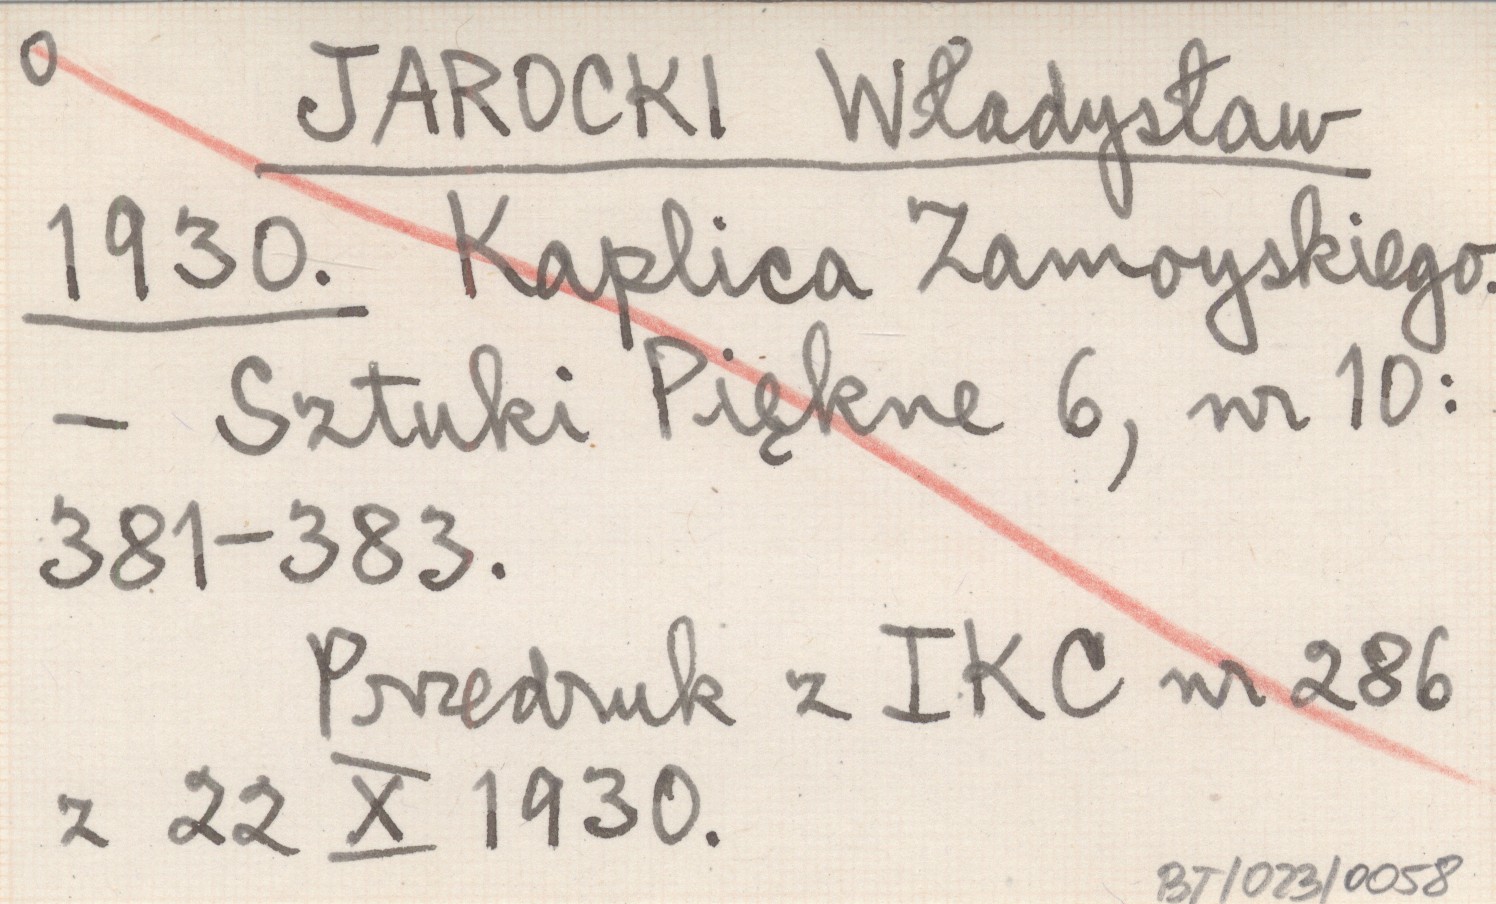 0 JAROCKI Władysław
1930. Kaplica Zamoyskiego.
– Sztuki Piękne 6, nr 10:
381–383.
Przedruk z IKC nr 286
z 22 X 1930.
BT/023/0058